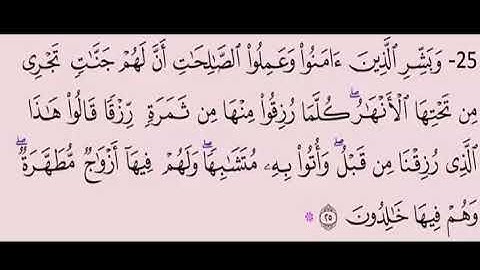 25- وَبَشِّرِ الَّذِينَ ءَامَنُوا۟ وَعَمِلُوا۟ الصَّالِحَاتِ أَنَّ لَهُمْ جَنَّاتٍ تَجْرِي
مِن تَحْتِهَا الْأَنْهَارُ ۖ كُلَّمَا رُزِقُوا۟ مِنْهَا مِن ثَمَرَةٍ رِّزْقًا قَالُوا۟ هَاذَا
الَّذِي رُزِقْنَا مِن قَبْلُ ۖ وَأُتُوا۟ بِهِۦ مُتَشَابِهًا ۖ وَلَهُمْ فِيهَآ أَزْوَاجٌ مُّطَهَّرَةٌ ۖ
وَهُمْ فِيهَا خَالِدُونَ ۝٢٥ *